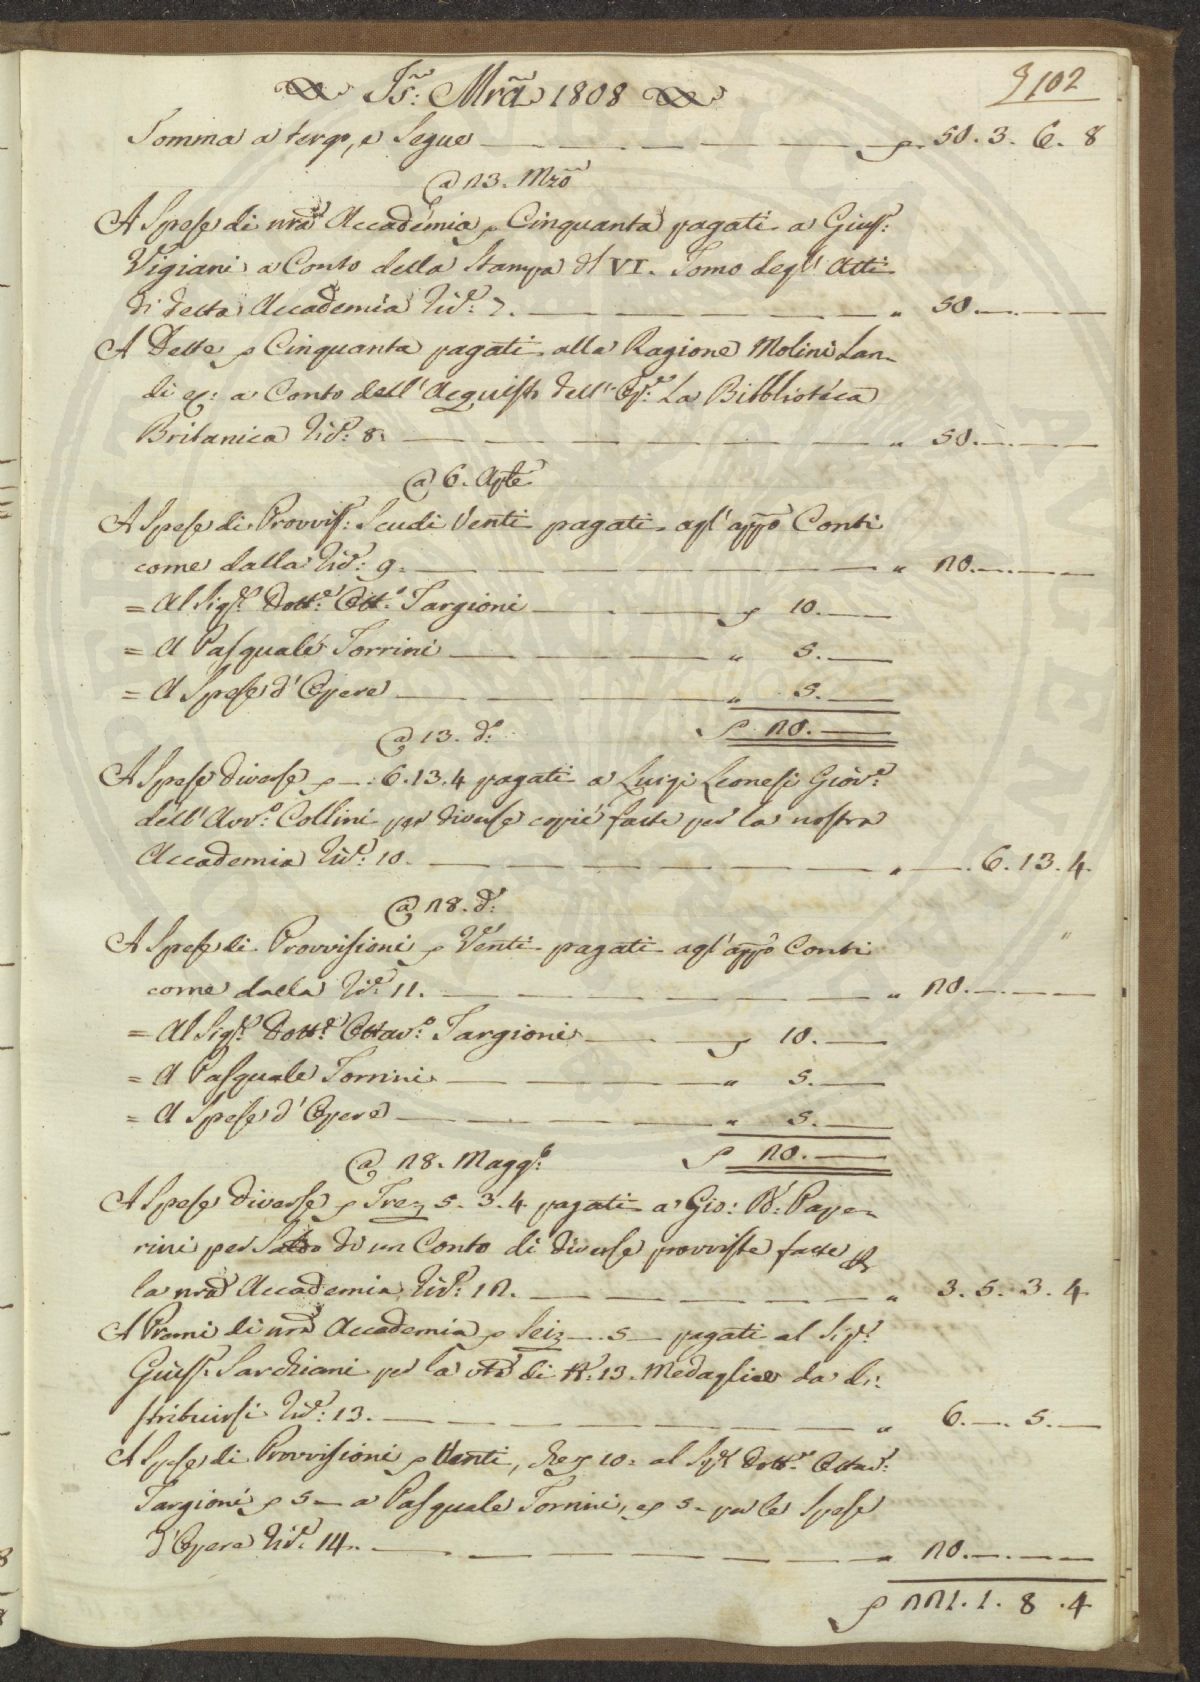 Js: Mrã 1808
102
Somma a tergo, e Segue 50. 3. 6. 8
@ 23. Mzõ
A Spese di nrã Accademia Cinquanta pagati a Gius:
Vigiani a Conto della Stampa dl VI. Tomo degl' Atti
di detta Accademia Rid: 7. " 50.
A Dette Cinquanta pagati alla Ragione Molini Lan-
di e: a Conto dell'Acquisto dell' Op: La Bibblioteca
Britanica Rid: 8. " 50.
@ 6. Aple
A Spese di Provvis: Scudi Venti pagati agl'appõ Conti
come dalla Rid: 9. " 20.
= Al Sigr. Dott: Ott: Targioni 10.
= A Pasquale Torrini " 5.
= A Spese d'Opere " 5.
20.
@ 13. do
A Spese diverse 6.13.4 pagati a Luigi Leonesi Giov:
dell'Avv: Collini per diverse copie fatte per la nostra
Accademia Rid: 10. " 6. 13. 4.
@ 28. d:
A Spese di Provvisioni Venti pagati agl'appõ Conti
come dalla Rid: 11. " 20.
= Al Sigr. Dott: Ottav: Targioni 10.
= A Pasquale Torrini " 5.
= A Spese d'Opere " 5.
20.
@ 28. Magg:
A Spese diverse Tre 5. 3. 4 pagati a Gio: Bã: Pape-
rini per Saldo di un Conto di diverse provviste fatte
la nrã Accademia Rid: 12. " 3. 5. 3. 4
A Premi di nrã Accademia Sei 5 pagati al Sigr.
Giuss: Sarchiani per la di N: 13. Medaglie da di:
stribuirsi Rid: 13. " 6. 5.
A Spese di Provvisioni Venti, che 10: al Sigr Dott: Ottav:
Targioni 5 a Pasquale Torrini, e 5 per le Spese
d'Opere Rid: 14. " 20.
221. 1. 8. 4